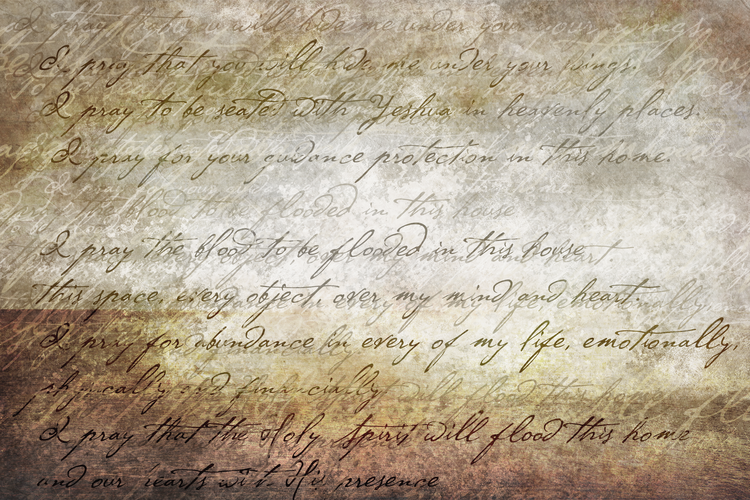 I pray that you will hide me under your wings
I pray that you will hide me under your wings.
I pray to be seated with Yeshua in heavenly places.
I pray for your guidance protection in this home.
pray the blood to be flooded in this house
I pray the blood to be flooded in this house
this space, every object over my mind and heart.
I pray for abundance in every of my life, emotionally,
physically and financially
I pray that the Holy Spirit will flood this home
and our hearts with His presence